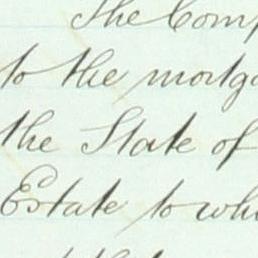 The Comp
to the mortga
the State of
Estate to whi